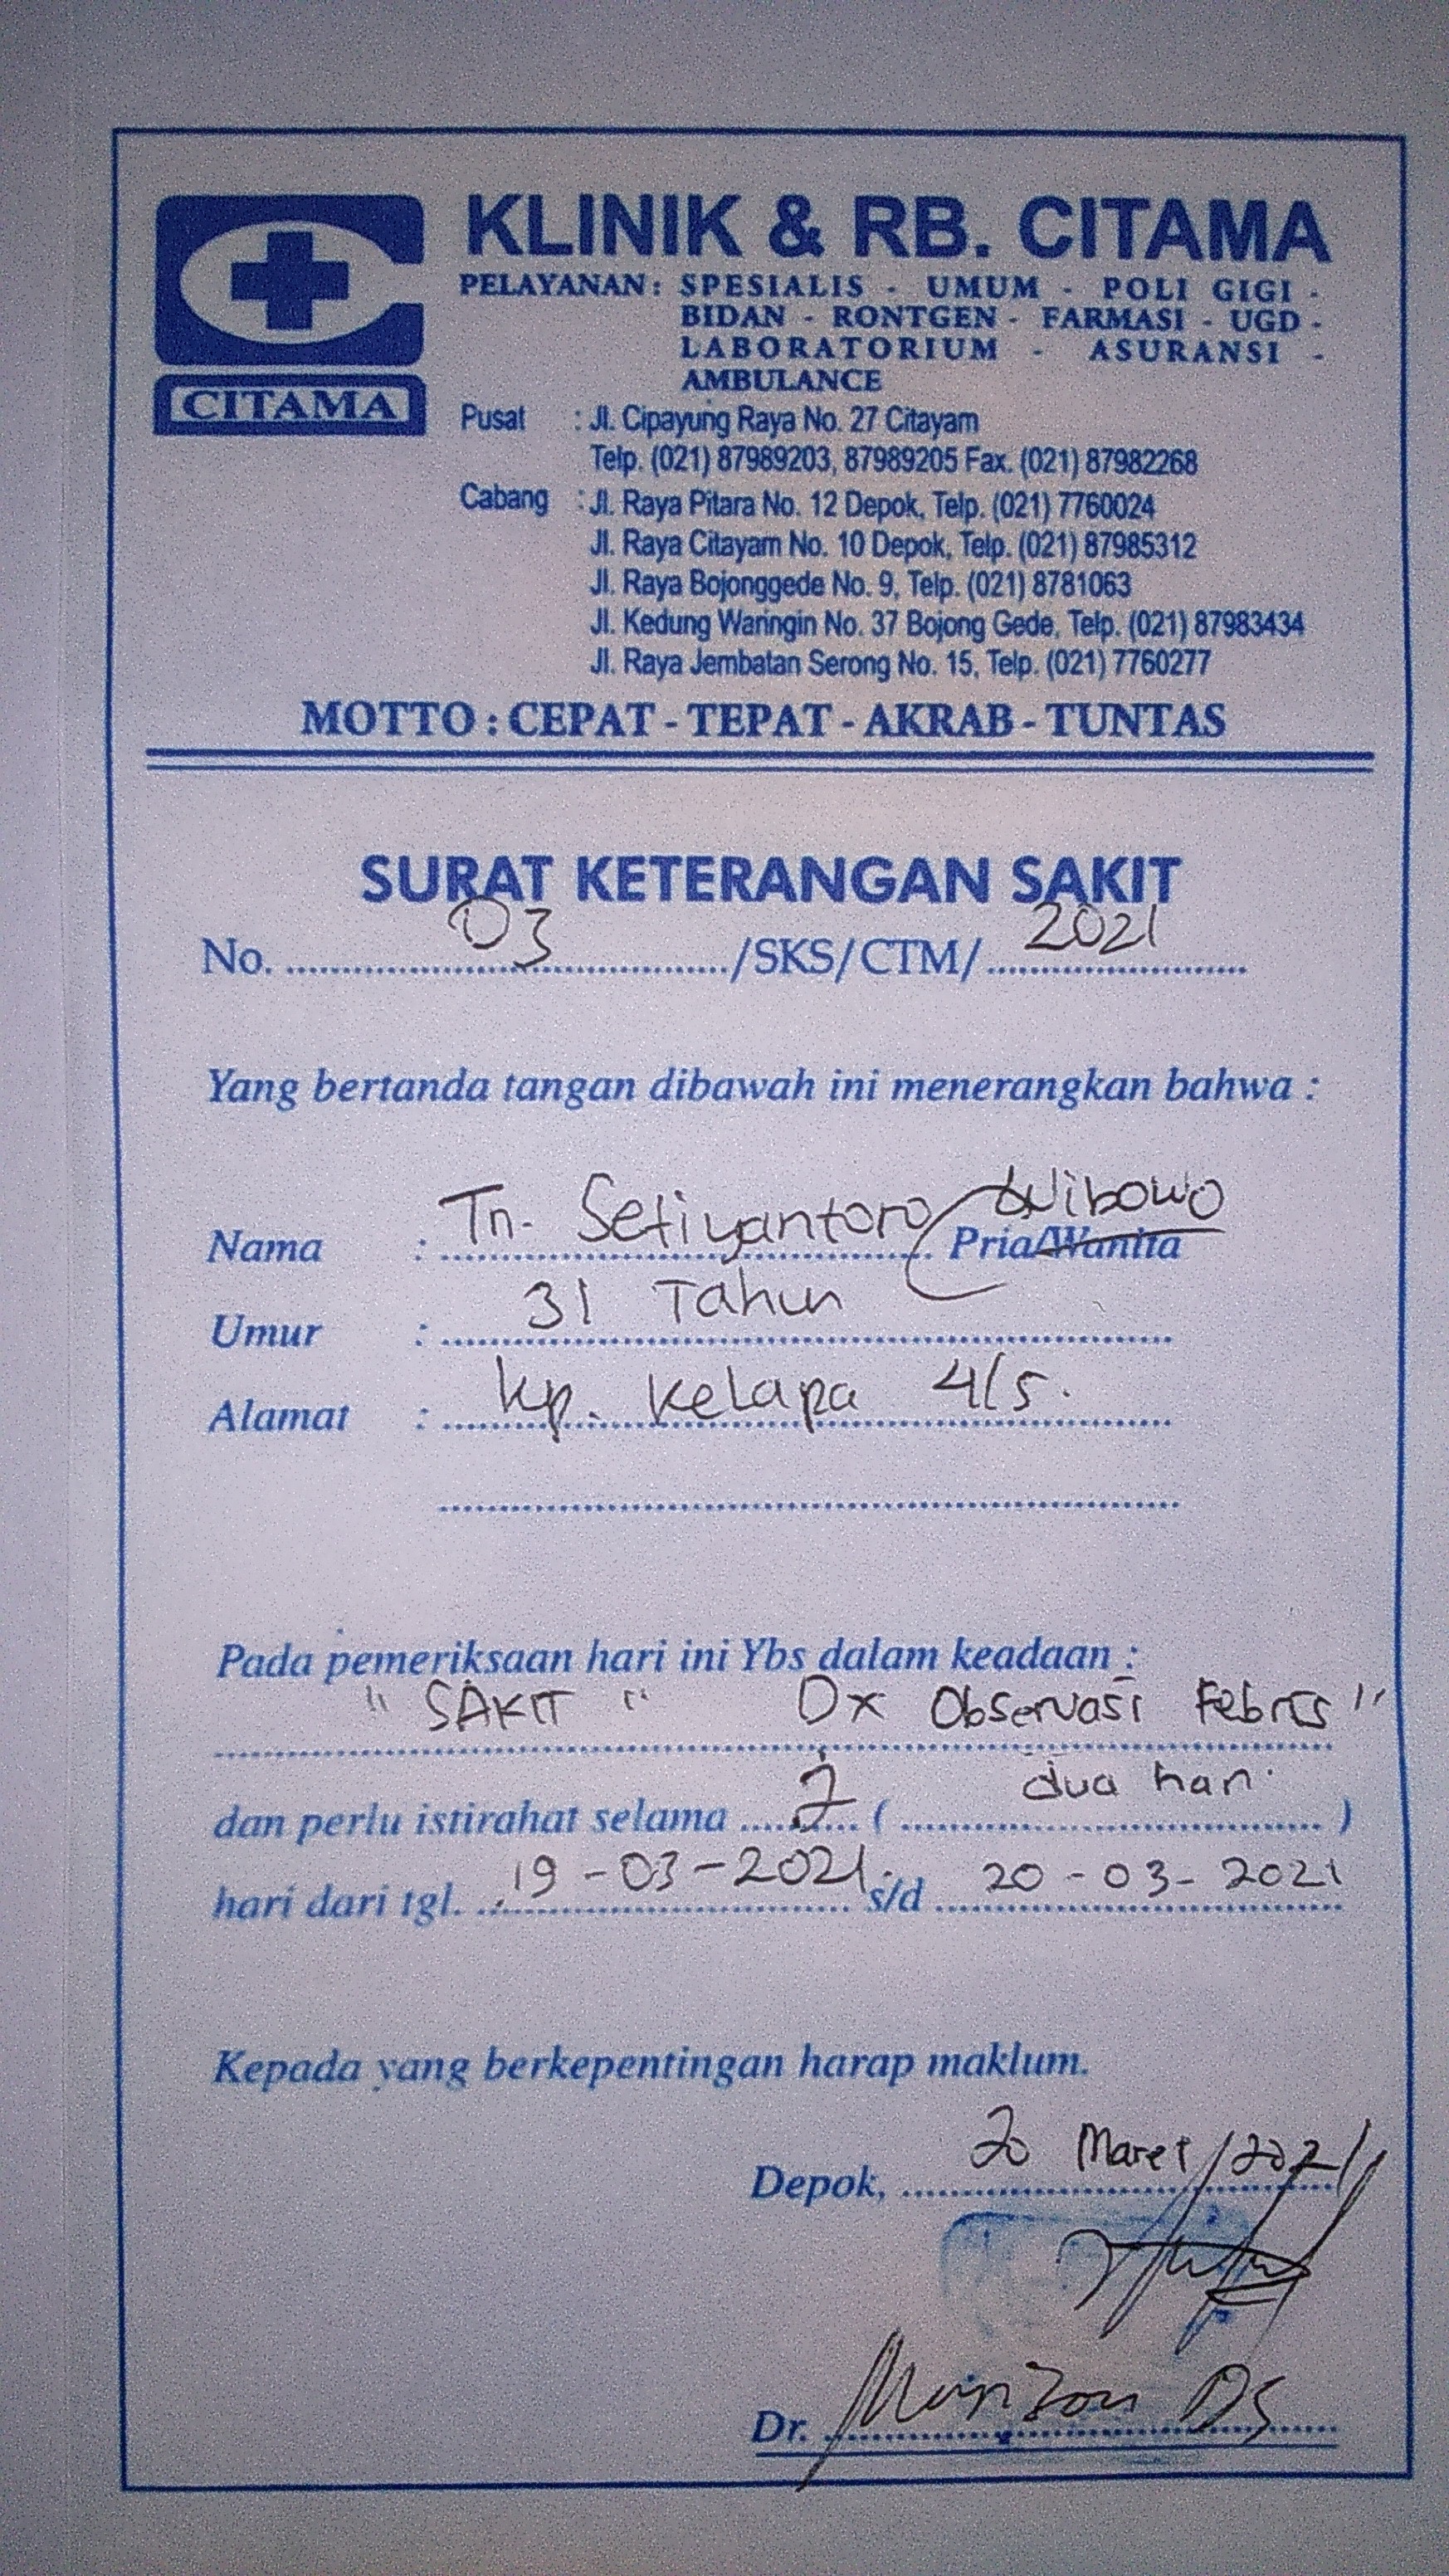 KLINIK & RB. CITAMA
PELAYANAN : SPESIALIS - UMUM - POLI GIGI -
BIDAN - RONTGEN - FARMASI - UGD -
LABORATORIUM - ASURANSI -
AMBULANCE
CITAMA
Pusat : Jl. Cipayung Raya No. 27 Citayam
Telp. (021) 87989203, 87989205 Fax. (021) 87982268
Cabang : Jl. Raya Pitara No. 12 Depok, Telp. (021) 7760024
Jl. Raya Citayam No. 10 Depok, Telp. (021) 87985312
Jl. Raya Bojonggede No. 9, Telp. (021) 8781063
Jl. Kedung Waringin No. 37 Bojong Gede, Telp. (021) 87983434
Jl. Raya Jembatan Serong No. 15, Telp. (021) 7760277
MOTTO : CEPAT - TEPAT - AKRAB - TUNTAS
SURAT KETERANGAN SAKIT
No. 03 /SKS/CTM/ 2021
Yang bertanda tangan dibawah ini menerangkan bahwa :
Nama : Tn. Setiyantoro Wibowo Pria/Wanita
Umur : 31 Tahun
Alamat : kp. Kelapa 4/5.
Pada pemeriksaan hari ini Ybs dalam keadaan :
"SAKIT" Dx Observasi Febris"
dan perlu istirahat selama 2 ( dua hari )
hari dari tgl. 19-03-2021 s/d 20-03-2021
Kepada yang berkepentingan harap maklum.
Depok, 20 Maret 2021
Dr.